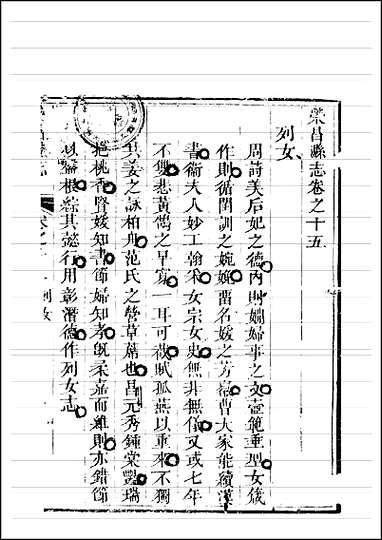 榮昌縣志卷之十五
列女
周詩美后妃之德內則嫻婦事之文壼範垂型女箴
作則循閨訓之婉娩留名媛之芳徽曹大家能續漢
書衛夫人妙工翰采女宗女史無非無儀又或七年
不雙悲黃鵠之早寡一耳可截賦孤燕以重來不獨
共姜之詠柏舟范氏之營草墓也昌元秀鍾棠豔瑞
挹桃香賢媛知書節婦知孝旣柔嘉而維則亦錯節
以盤根綜其懿行用彰潛德作列女志
列女